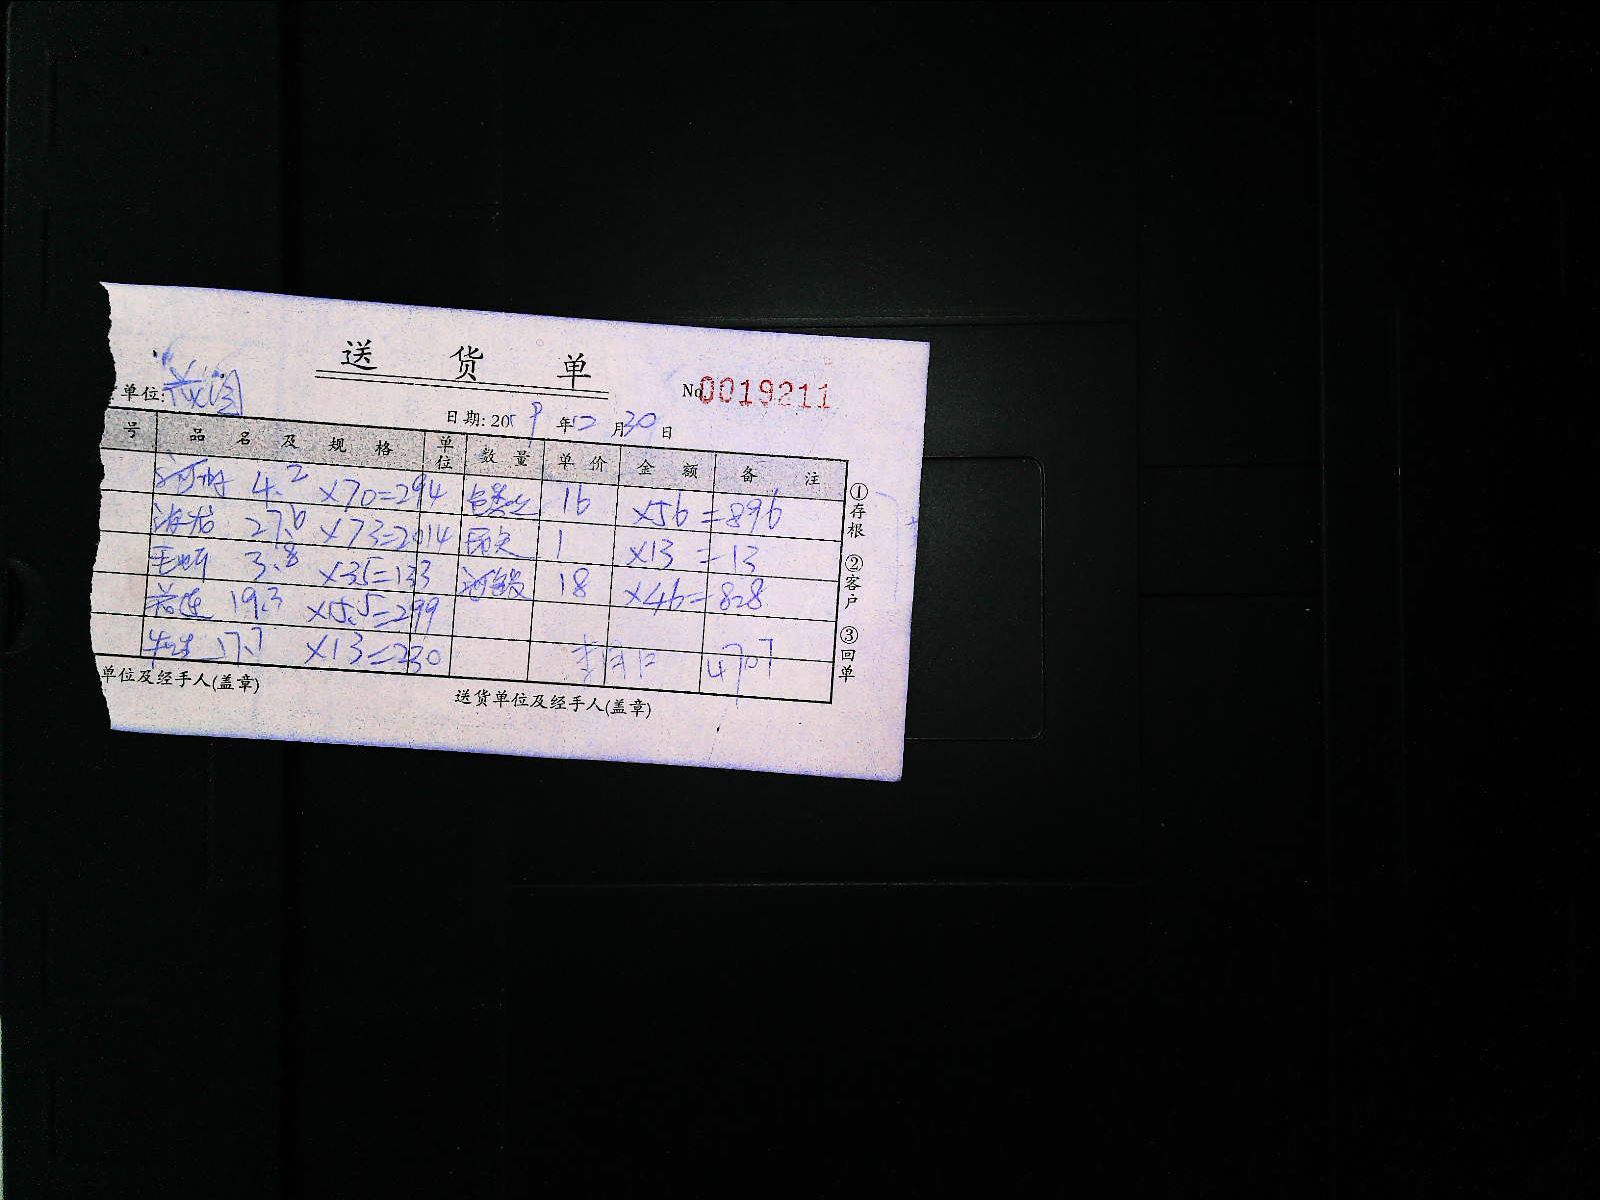 送 货 单
No 0019211
单位:
日期: 2019 年12月30日
号 品 名 及 规 格 单位 数 量 单 价 金 额 备 注
河虾 4.2 ×70=294 16 ×56=896
27.6 ×73=2014 1 ×13=13
3.8 ×35=133 河鳗 18 ×46=828
19.3 ×15.5=299
17.7 ×13=230 4707
①存根 ②客户 ③回单
单位及经手人(盖章) 送货单位及经手人(盖章)